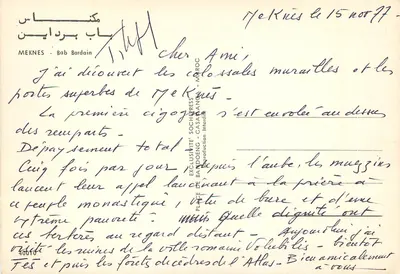 مكناس
باب برداين
MEKNES - Bab Bardain
Meknès le 15 nov 77.
Cher Ami,
J'ai découvert les colossales murailles et les
portes superbes de Meknès.
La première cigogne s'est envolée au dessus
des remparts.
Dépaysement total.
Cinq fois par jour, depuis l'aube, les muezzins
lancent leur appel lancinant à la prière à
ce peuple monastique, vêtu de bure et d'une
extrême pauvreté. Mais quelle dignité ont
ces au regard distant. Aujourd'hui j'ai
visité les ruines de la ville romaine Volubilis. Bientôt
Fès et puis les forêts de cèdres de l'Atlas. Bien amicalement
à vous.
EXCLUSIVITÉ SOCHEPRESS
CASABLANCA - MAROC